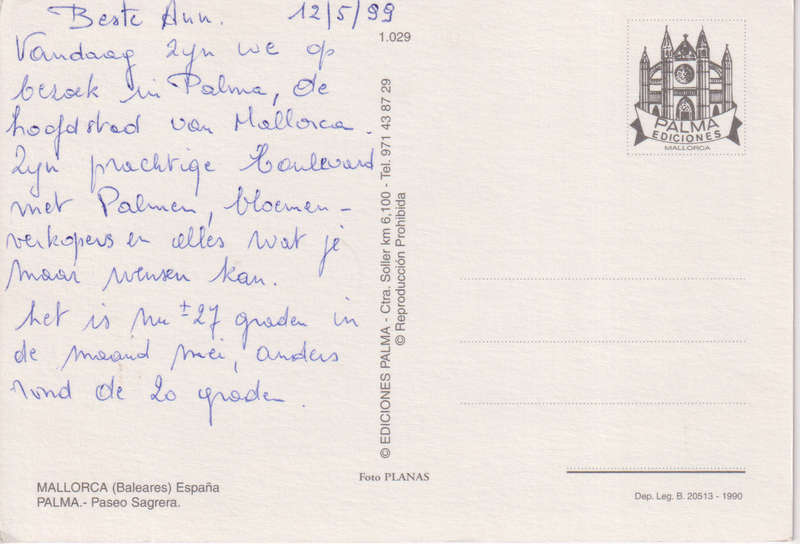 Beste Ann. 12/5/99
Vandaag zyn we op
bezoek in Palma, de
hoofdstad van Mallorca.
Zyn prachtige Boulevard
met Palmen, bloemen-
verkopers en alles wat je
maar wensen kan.
het is nu ± 27 graden in
de maand mei, anders
rond de 20 graden.
MALLORCA (Baleares) España
PALMA.- Paseo Sagrera.
1.029
© EDICIONES PALMA - Ctra. Soller km 6,100 - Tel. 971 43 87 29
© Reproducción Prohibida
Foto PLANAS
PALMA
EDICIONES
MALLORCA
Dep. Leg. B. 20513 - 1990